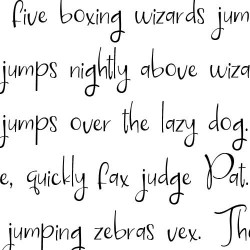 five boxing wizards jum
jumps nightly above wiza
jumps over the lazy dog.
e, quickly fax judge Pat.
jumping zebras vex. Th